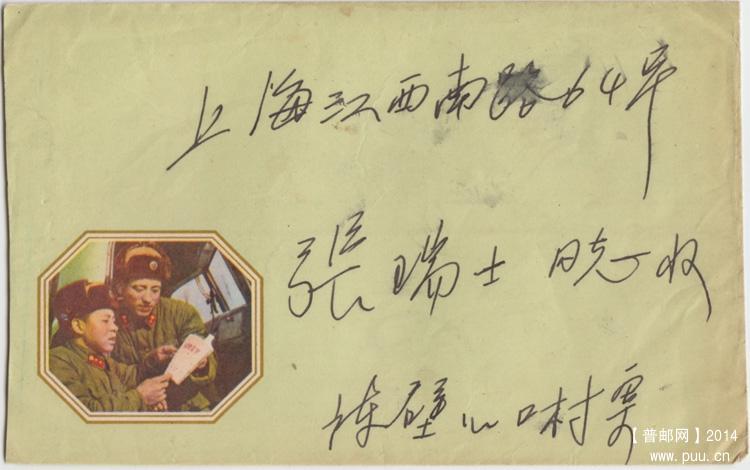 上海江西南路64弄
张瑞士 同志收
【普邮网】2014
www.puu.cn